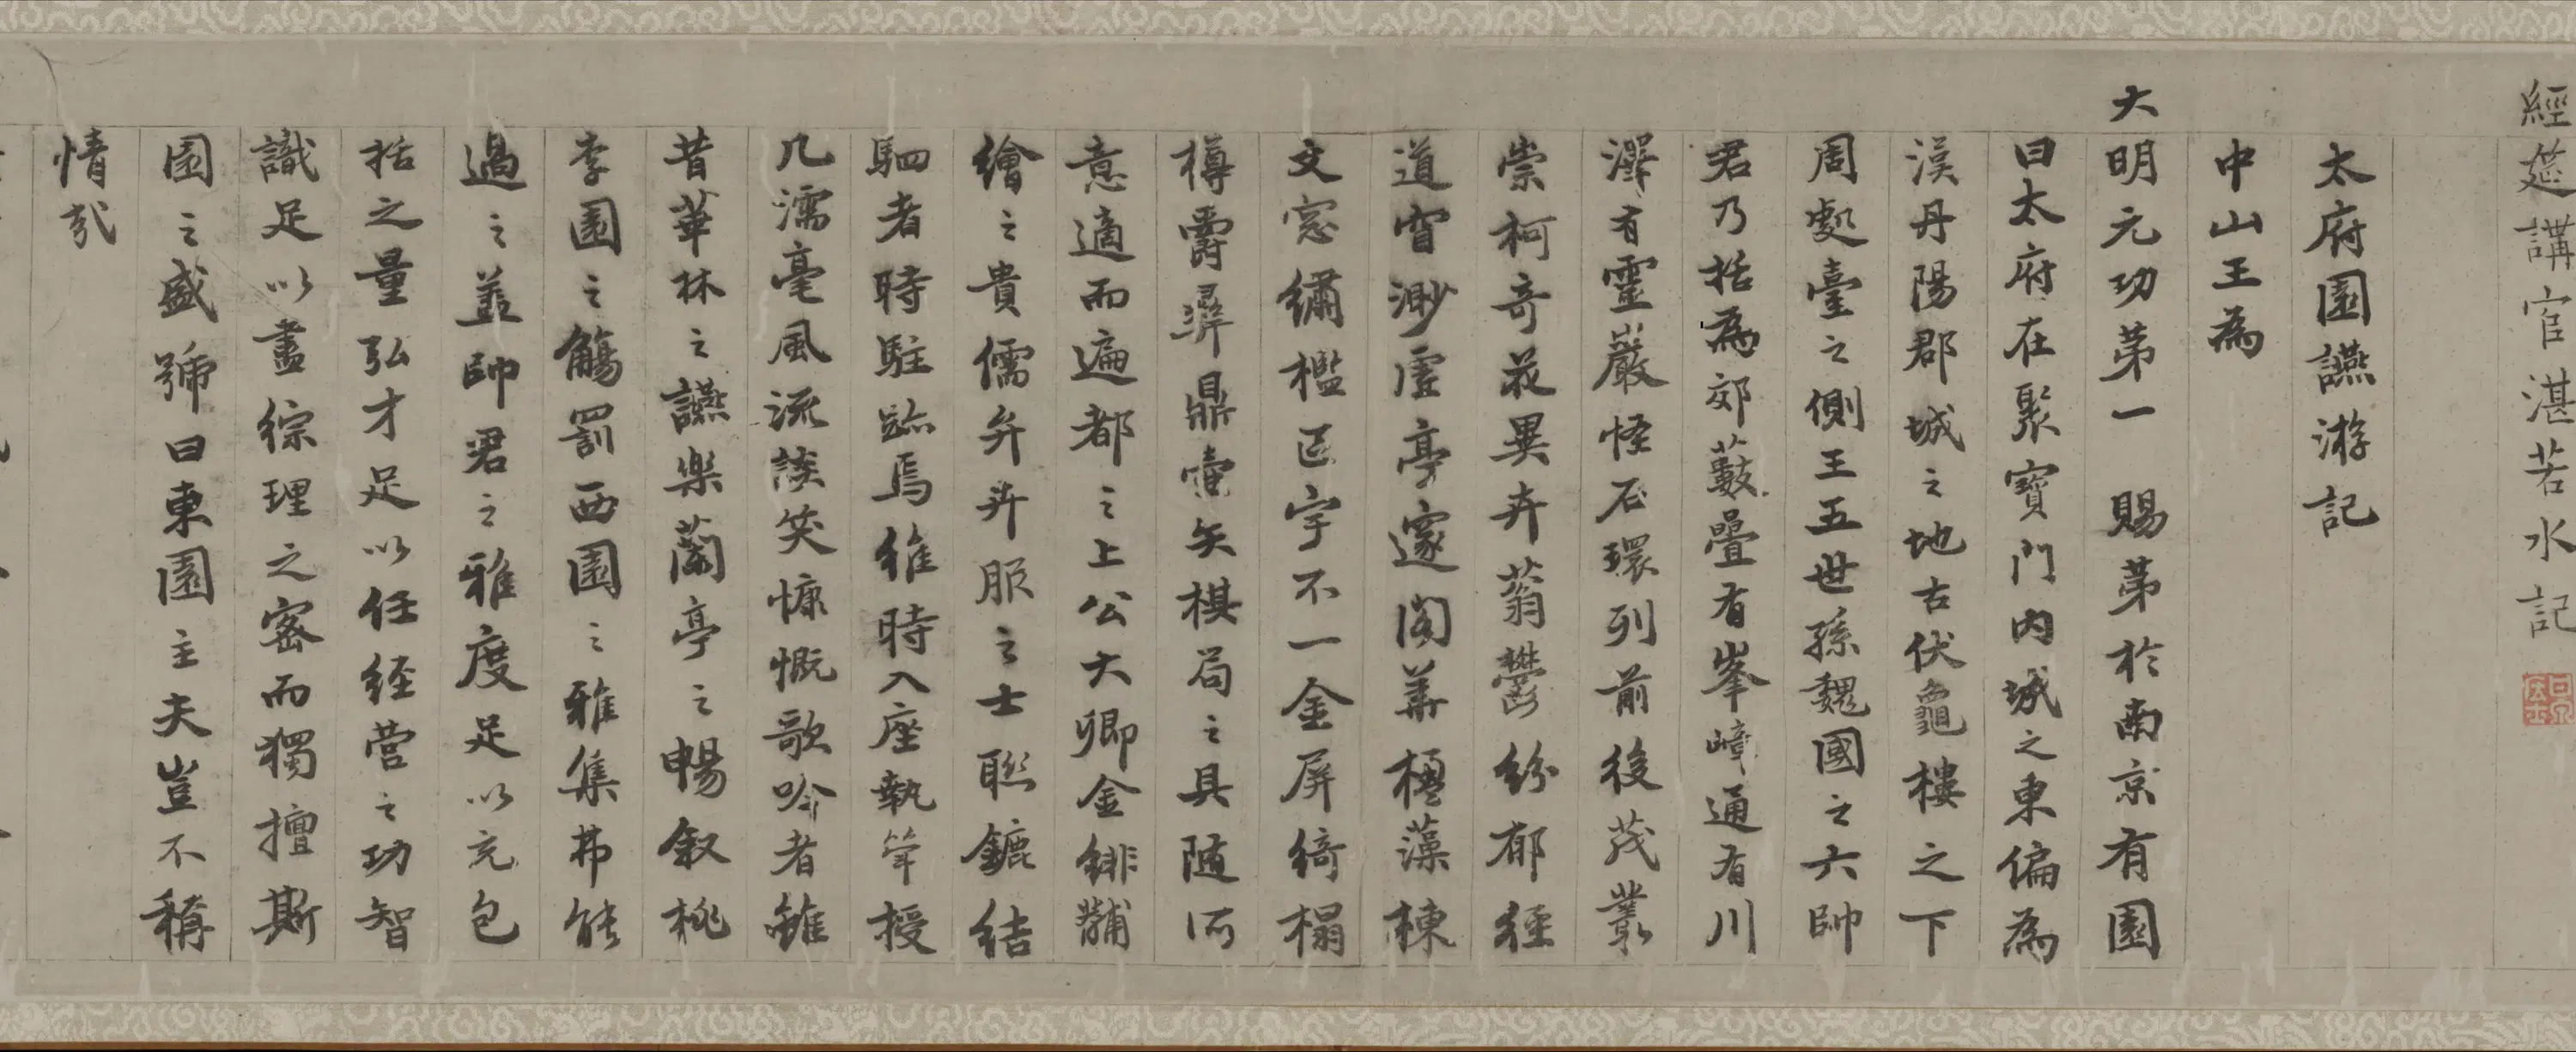 經筵講官湛若水記
太府園讌游記
中山王為
大明元功第一 賜第於南京有園
曰太府在聚寶門內城之東偏為
漢丹陽郡城之地古伏龜樓之下
周處臺之側王五世孫魏國之六帥
君乃括為郊藪疊有峯嶂通有川
澤有靈巖怪石環列前後茂叢
崇柯奇花異卉蓊鬱紛郁徑
道窅渺虛亭邃閣華楹藻棟
文窓繡檻匠宇不一金屏綺榻
樽爵彛鼎壺矢棋局之具随所
意適而遍都之上公大卿金緋黼
繪之貴儒弁卉服之士聮鑣結
駟者時駐跡焉維時入座執筆授
几濡毫風流談笑慷慨歌吟者雖
昔華林之讌樂蘭亭之暢叙桃
李園之觴罰西園之雅集弗能
過之盖帥君之雅度足以充包
括之量弘才足以任経营之功智
識足以盡綜理之密而獨擅斯
園之盛號曰東園主夫豈不稱
情哉